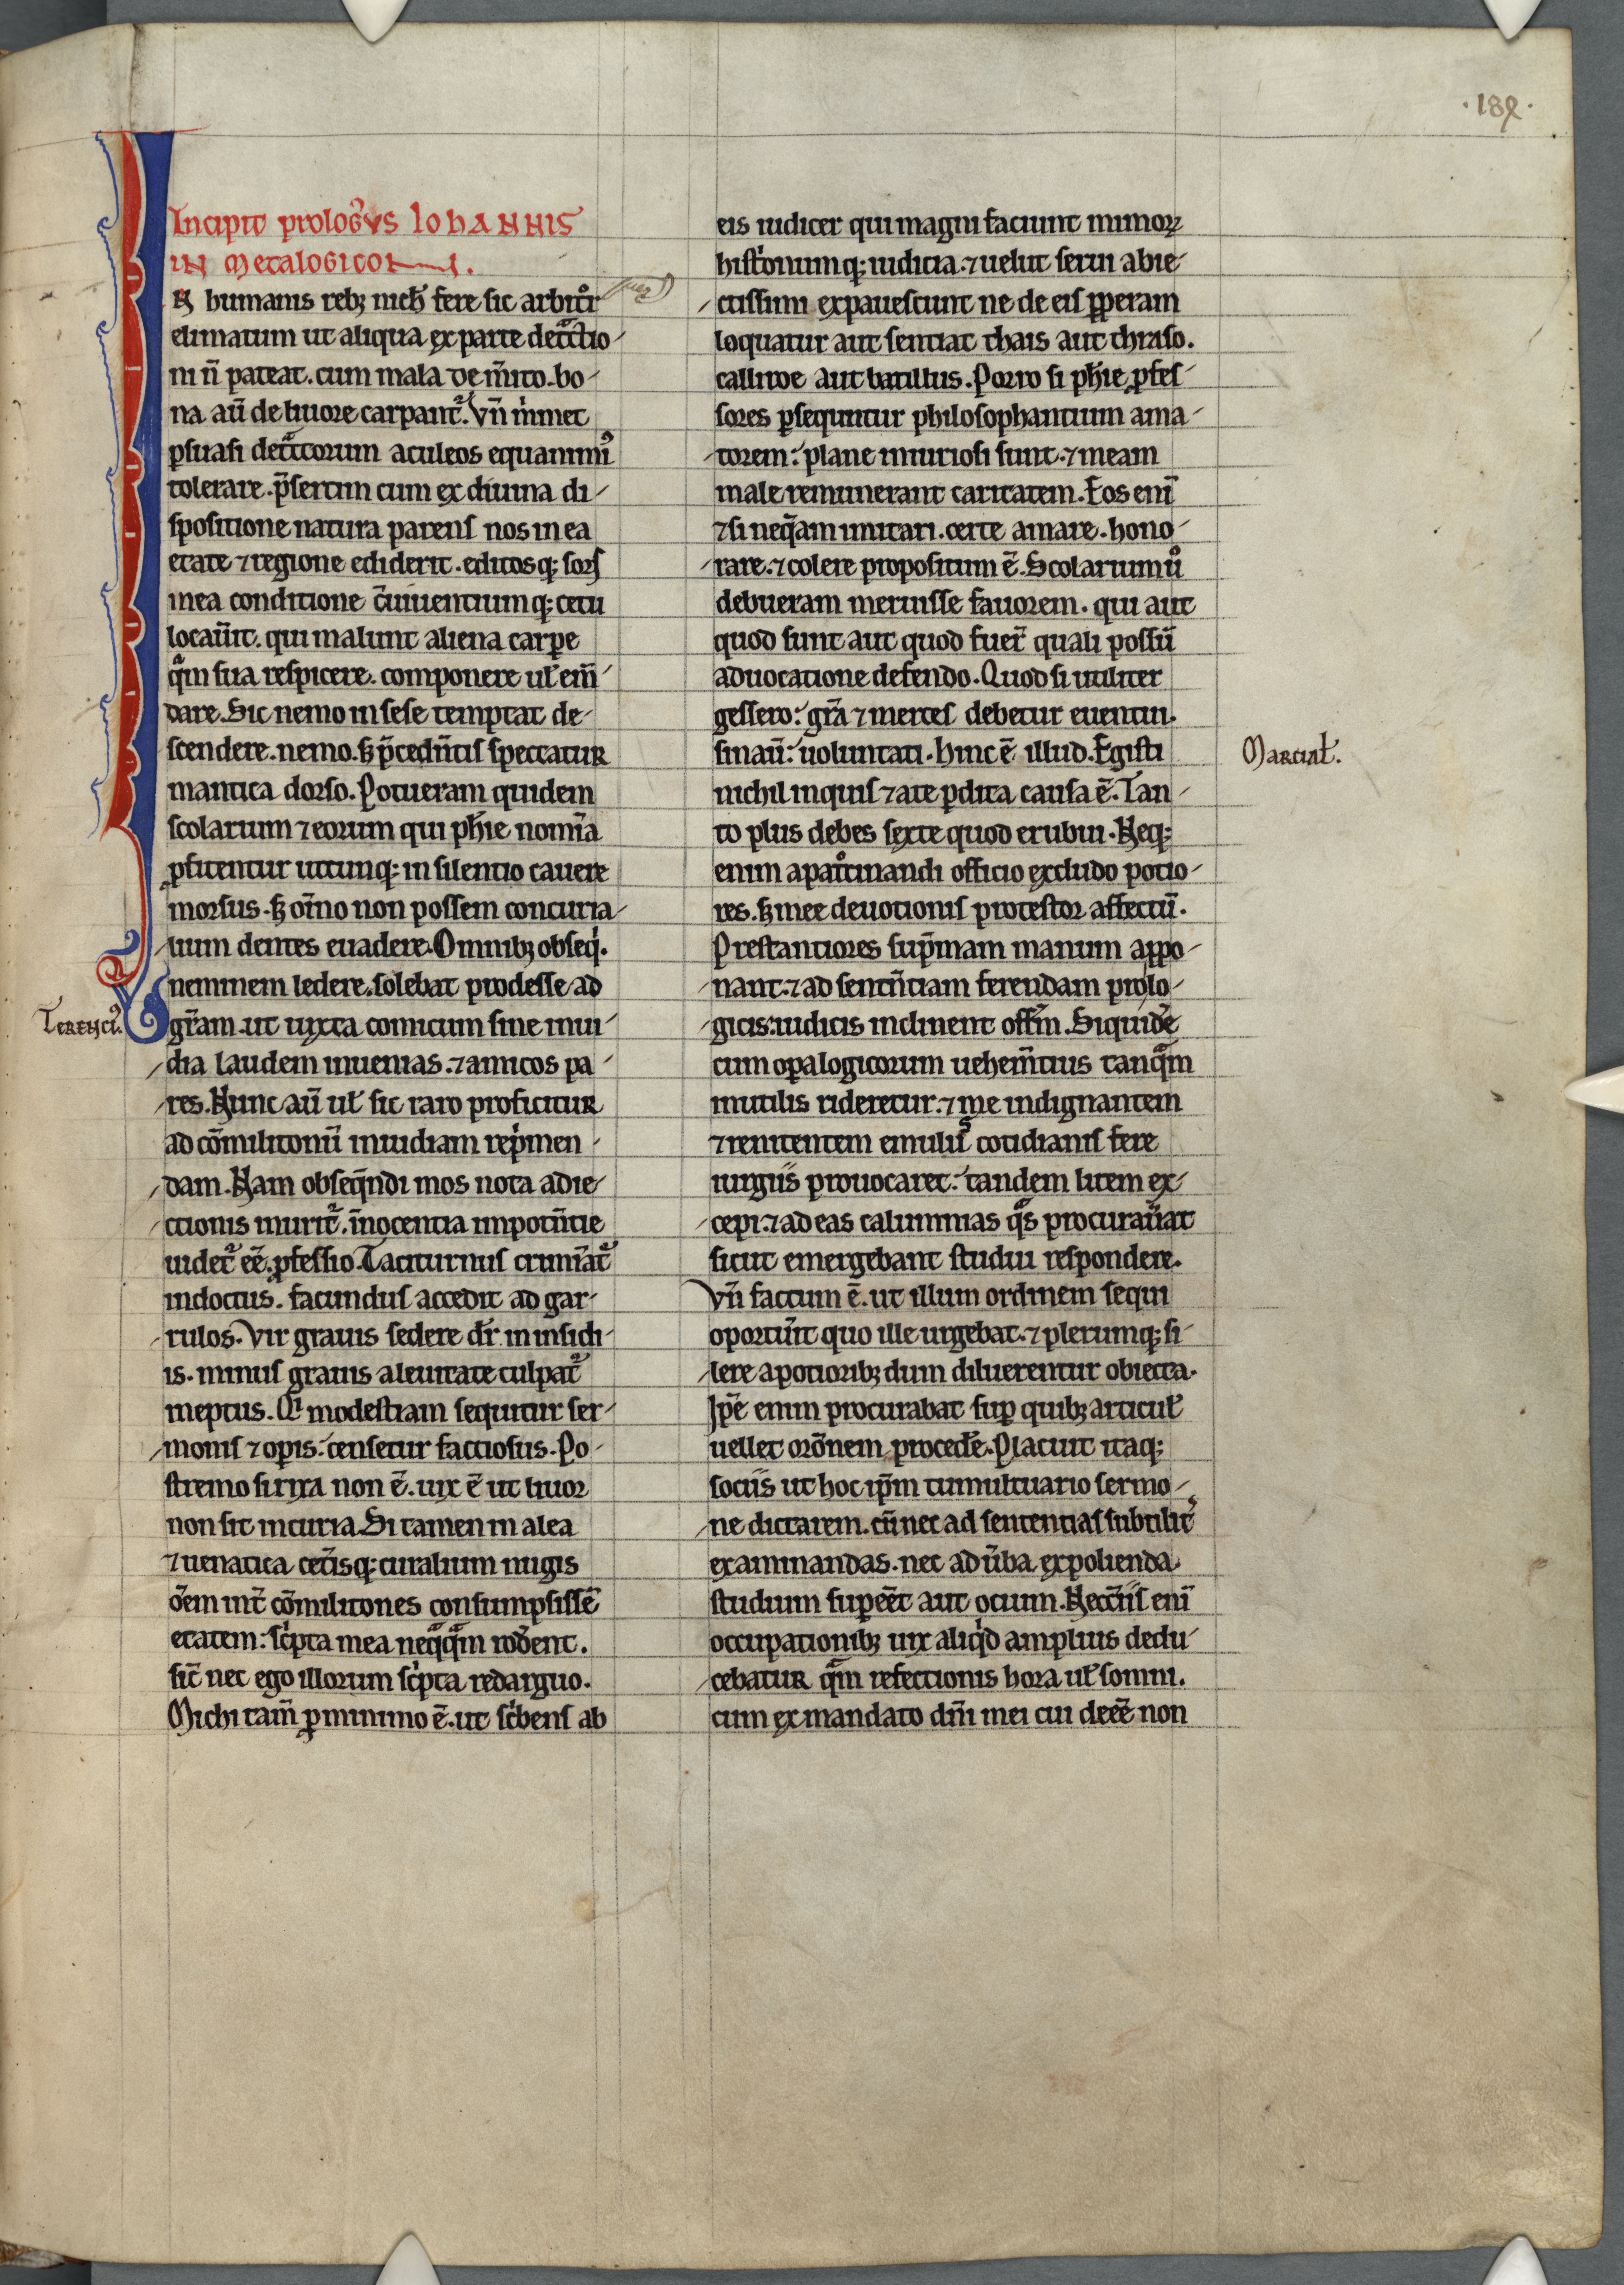 ·189·
Incipit prologꝰvs IoHANNIS
IN Metalogicon.
IN humanis rebꝫ nich̄ fere sic arbit͛or
elimatum ut aliqua ex parte detͣctio-
ni n̄ pateat. cum mala de m̄ito. bo-
na aū de liuore carpant᷑. Vn̄ m̍imet
ꝑsuasi detͣctorum aculeos equanimiꝰ
tolerare. p̄sertim cum ex diuina di-
spositione natura parens nos in ea
etate ⁊ regione ediderit. editosqꝫ sors
in ea conditione c̄uiuentiumqꝫ cetu
locau̅it. qui malunt aliena carꝑe
qͣm sua respicere. componere ul̄ em̄-
dare. Sic nemo in sese temptat de-
scendere. nemo. sꝫ p̄ceden̄tis spectatur
mantica dorso. Potueram quidem
scolarium ⁊ eorum qui ph̄ie nomīa
ꝓfitentur utcunqꝫ in silentio cauere
morsus. sꝫ om̄ino non possem concuria-
lium dentes euadere. Omnibꝫ obseq̍.
neminem ledere. solebat prodesse ad
Terenciꝰ.
gr̄am. ut iuxta comicum sine inui-
dia laudem inuenias. ⁊ amicos pa-
res. Nunc aū ul̄ sic raro proficitur
ad cōmilitonū inuidiam rep̍men-
dam. Nam obseq̄ndi mos nota adie-
ctionis inurit᷑. īnocentia impotn̄tie
uidet᷑ ēe. ꝓfessio. Taciturnus crimīat᷑
indoctus. facundus accedit ad gar-
rulos. Vir grauis sedere dr̄ in insidi-
is. minus grauis a leuitate culpat᷑
ineptus. Qͥ modestiam sequitur ser-
monis ⁊ opis. censetur factiosus. Po-
stremo si rixa non ē. uix ē ut liuor
non sit in curia. Si tamen in alea
⁊ uenatica cet̄isqꝫ curialium nugis
ōem int̄ cōmilitones consumpsissē
etatem. sc̍pta mea neqͣqͣm rodēent.
sic̄ nec ego illorum sc̍pta redarguo.
Michi tam̄ ꝑ minimo ē. ut sc̍bens ab
eis iudicer qui magni faciunt mimoꝝ
hist̍onumqꝫ iudicia. ⁊ uelut serui abie-
ctissimi expauescunt ne de eis ꝑꝑeram
loquatur aut sentiat thais aut thraso.
calliroe aut batillus. Porro si ph̄ie ꝓfes-
sores ꝑsequntur philosophantium ama-
torem. plane iniuriosi sunt. ⁊ meam
male remunerant caritatem. Eos enī
⁊ si neq̄am imitari. certe amare. hono-
rare. ⁊ colere propositum ē. Scolarium uͦ
debueram meruisse fauorem. qui aut
quod sunt aut quod fuer̄ quali possū
aduocatione defendo. Quod si utiliter
gessero. gr̄a ⁊ merces debetur euentui.
sin aū. uoluntati. hinc ē illud. Egisti
Marcial̄.
nichil inquis ⁊ a te ꝑdita causa ē. Tan-
to plus debes sexte quod erubui. Neqꝫ
enim a patͦcinandi officio excludo potio-
res. sꝫ mee deuotionis protestor affectū.
Prestantiores sup̄mam manum appo-
nant. ⁊ ad sentn̄tiam ferendam pro lo-
gicis. iudicis inclinent offm̄. Siquidē
cum oꝑa logicorum uehem̄tius tanqͣm
inutilis rideretur. ⁊ me indignantem
⁊ renitentem emulus cotidianis fere
iurgiis prouocaret. tandem litem ex-
cepi. ⁊ ad eas calumnias qͣs procurau̅at
sicut emergebant studui respondere.
Vn̄ factum ē. ut illum ordinem sequi
oportūit quo ille urgebat. ⁊ plerumqꝫ si-
lere a potioribꝫ dum diluerentur obiecta.
Ip̄e enim procurabat suꝑ quibꝫ articul̄
uellet orōnem procedē. Placuit itaqꝫ
sociis ut hoc ip̄m tumultuario sermo-
ne dictarem. cū nec ad sententias subtilit᷑
examinandas. nec ad ūba expolienda
studium suꝑeēt aut ocium. Necc̄iis enī
occupationibꝫ uix aliqͥd amplius dedu-
cebatur qͣm refectionis hora ul̄ somni.
cum ex mandato dn̄i mei cui deēe non